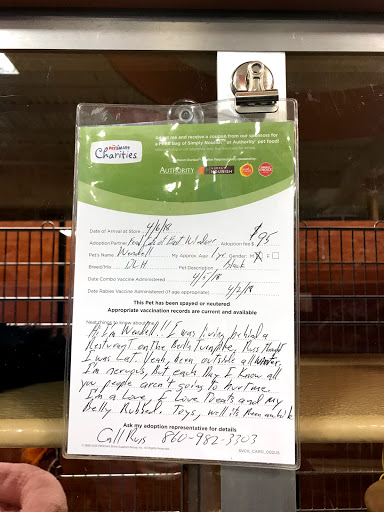 PETSMART
Charities
Adopt me and receive a coupon from our sponsors for
a FREE bag of Simply Nourish™ or Authority® pet food!
AUTHORITY SIMPLY NOURISH
Date of Arrival at Store 4/6/18
Adoption Partner East Windsor Adoption fee $ 95
Pet's Name Wendell My Approx. Age 1 yr. Gender: M X F
Breed/Mix DLH Pet Description Black
Date Combo Vaccine Administered 4/5/18
Date Rabies Vaccine Administered (if age appropriate) 4/2/18
This Pet has been spayed or neutered
Appropriate vaccination records are current and available
Neat things to know about me!
Hi I'm Wendell!! I was living behind a
Resturant on the Berlin Turnpike, Russ thought
I was Cat. Yeah, been outside all winter.
I'm nervous, But each Day I know all
you people aren't going to hurt me.
I'm a Love, I Love Treats and my
Belly Rubbed. Toys, well its been awhile
Ask my adoption representative for details
Call Russ 860-982-3303